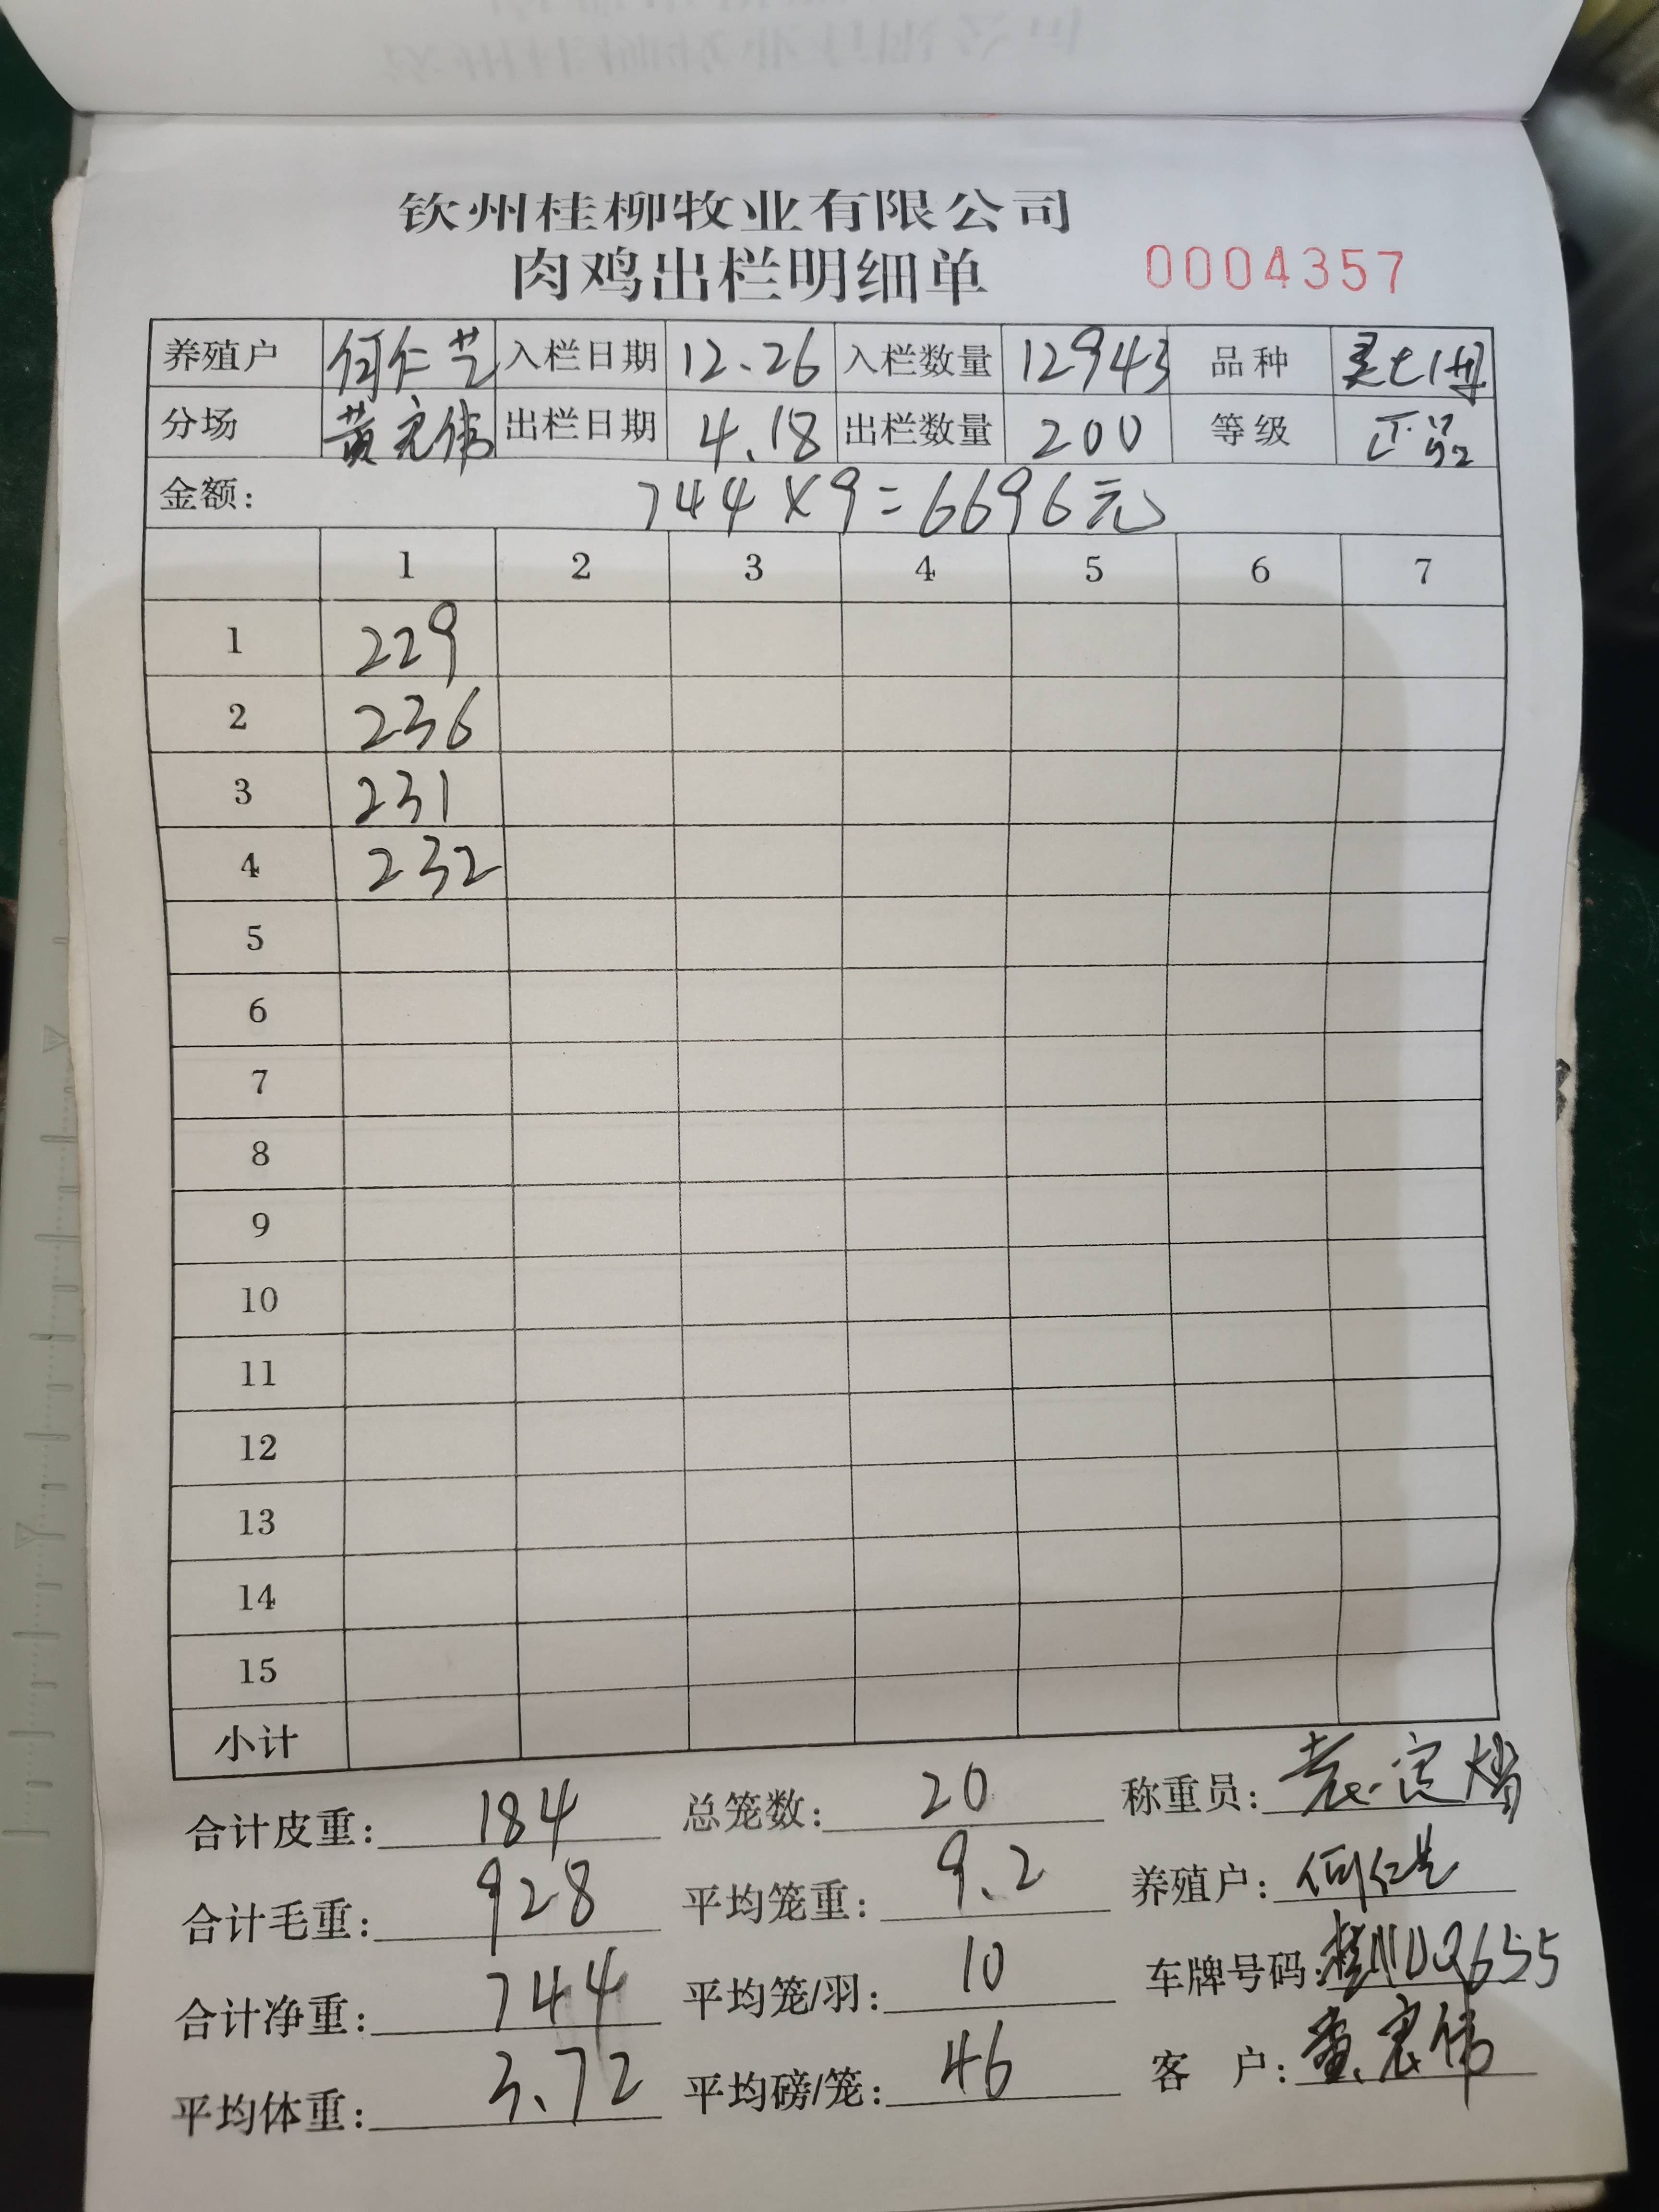 钦州桂柳牧业有限公司
肉鸡出栏明细单 0004357
养殖户 何仁芝 入栏日期 12.26 入栏数量 12943 品种
分场 黄宏伟 出栏日期 4.18 出栏数量 200 等级 正品
金额: 744×9=6696元
1 2 3 4 5 6 7
1 229
2 236
3 231
4 232
5
6
7
8
9
10
11
12
13
14
15
小计
合计皮重: 184 总笼数: 20 称重员:
合计毛重: 928 平均笼重: 9.2 养殖户: 何仁芝
合计净重: 744 平均笼/羽: 10 车牌号码: 桂NDQ655
平均体重: 3.72 平均磅/笼: 46 客 户: 黄宏伟